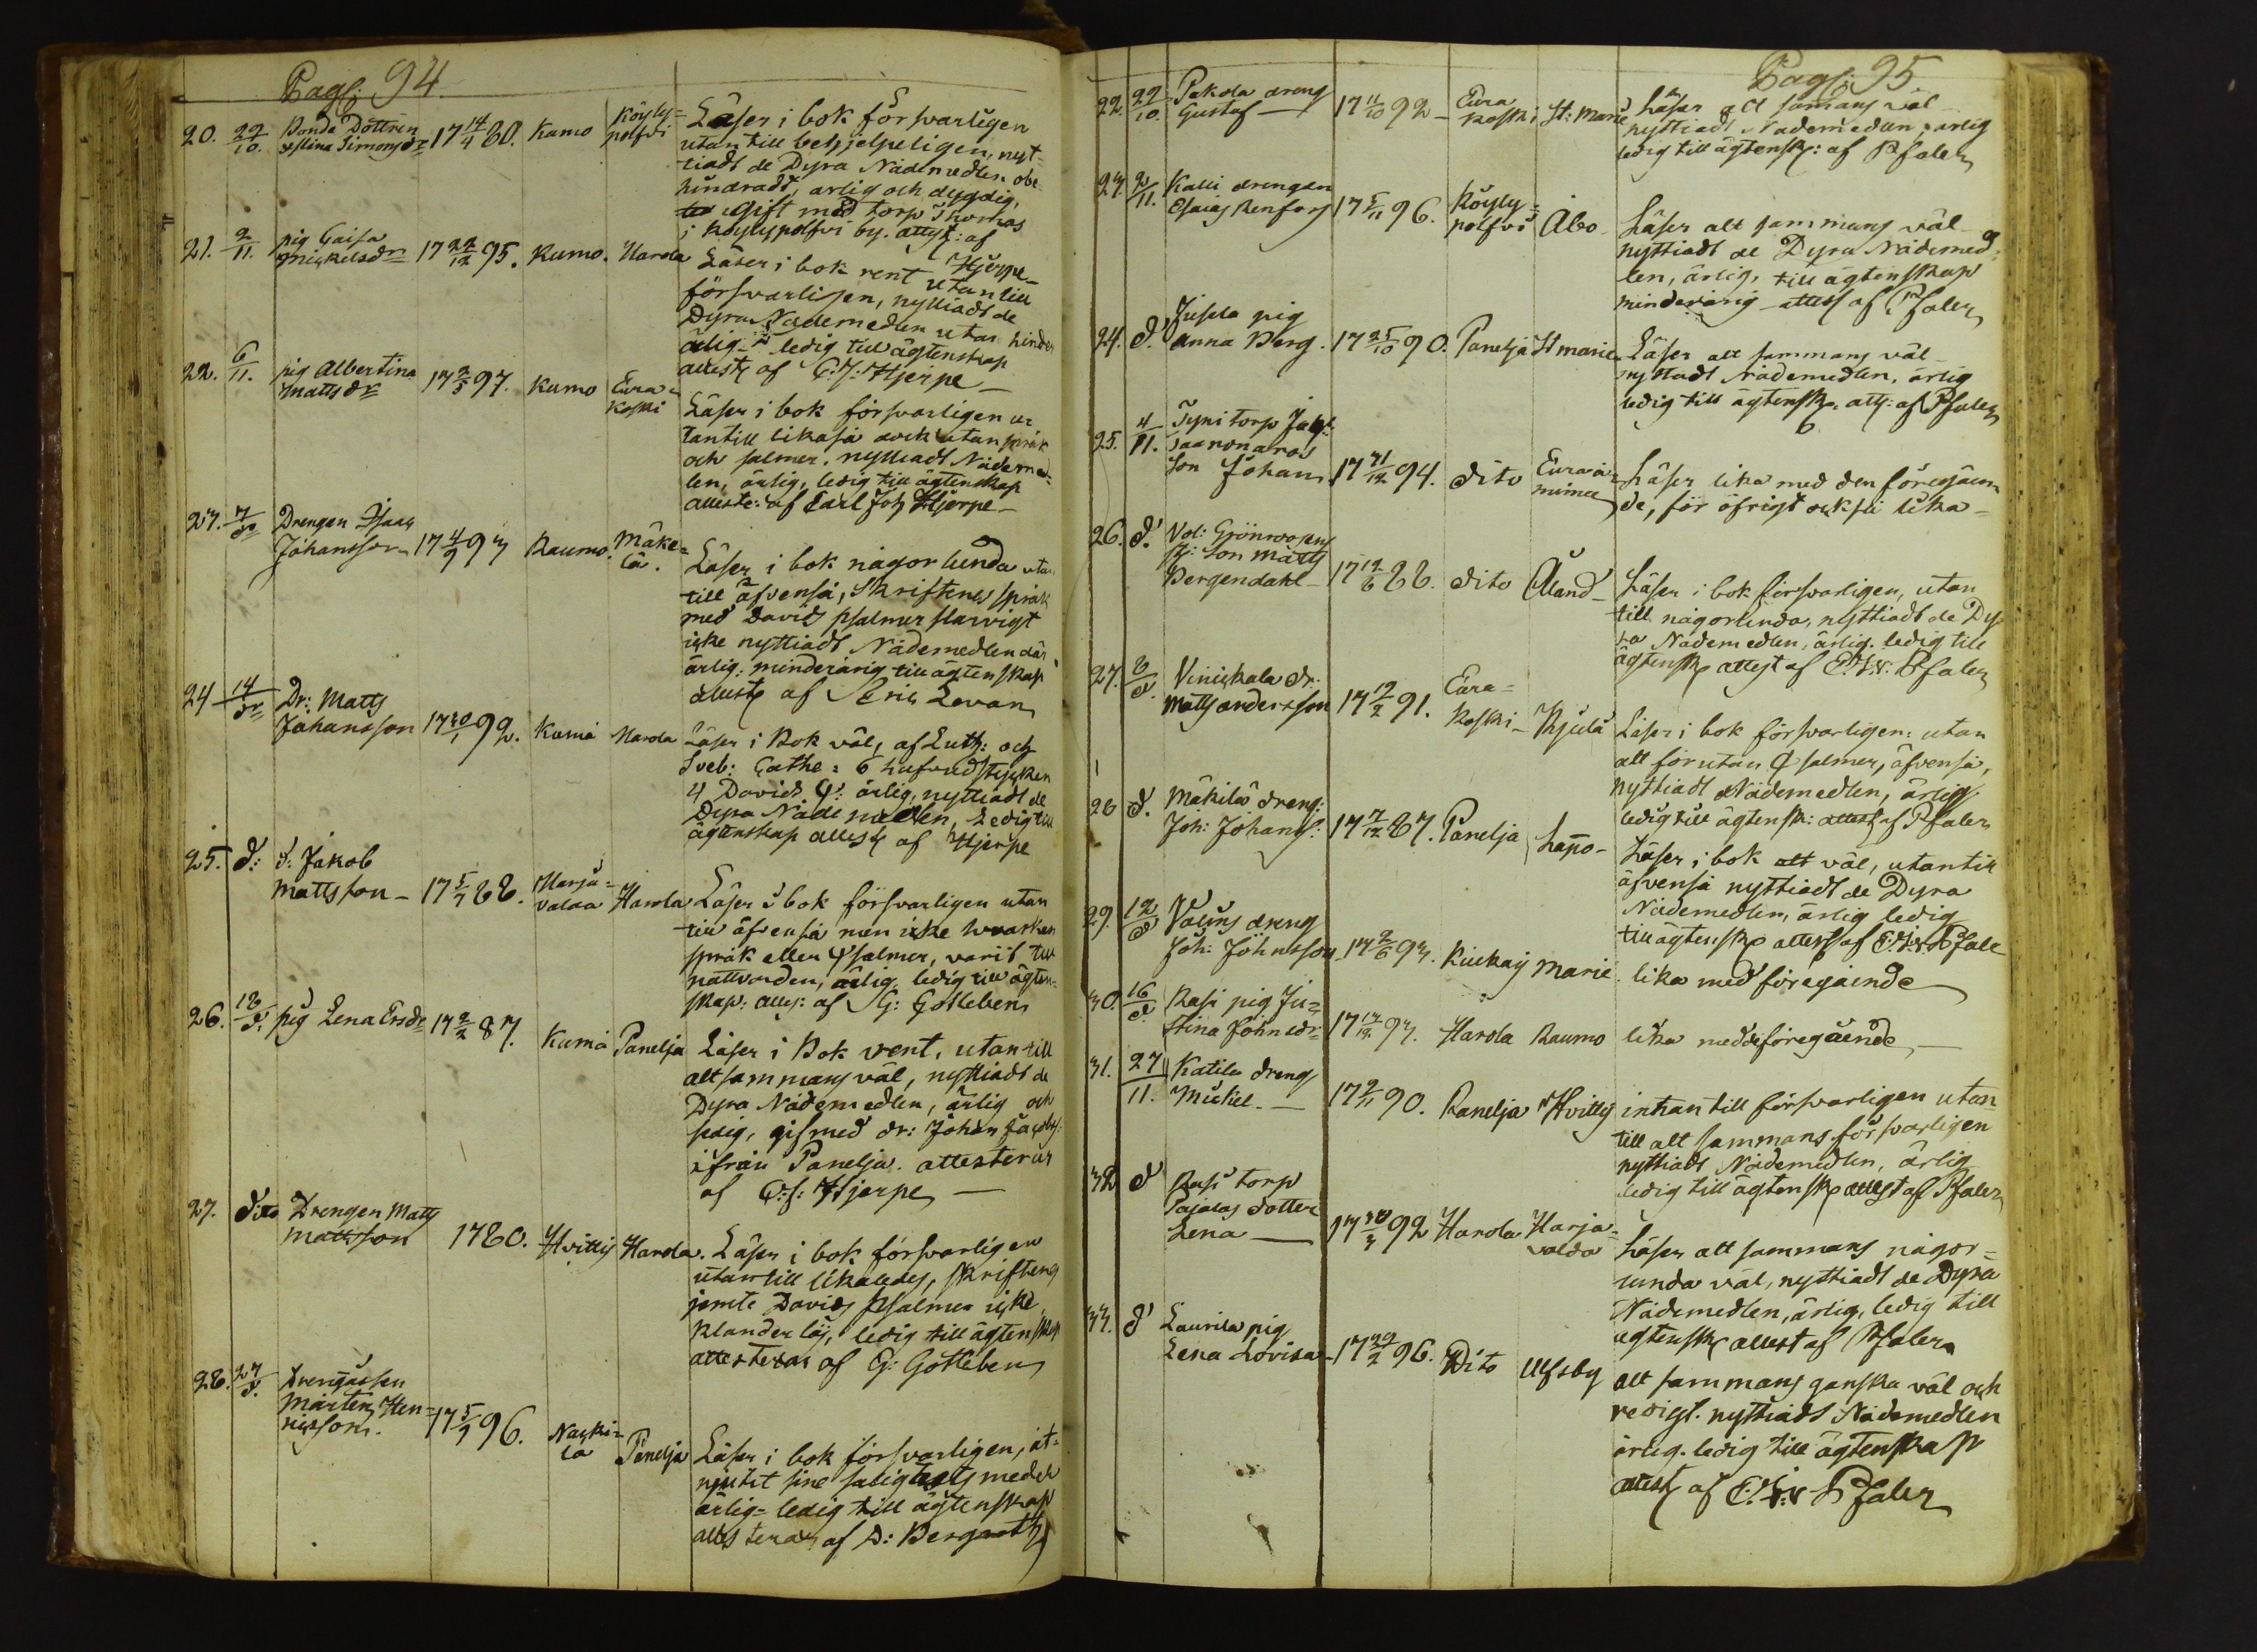 Pag: 94
20. 22/10. Bonde Dottren Stina Simonsdr 17 14/4 80. Kumo Köyly=polfvi
Läser i bok försvarligen
utantill behjelpeligen, nyt=
tiadt de Dyra Nådemedlen obe=
hindradt, ärlig och dygdig,
Gift med torp Thomas
i Köylypolfvi by. attest: af
Hjerpe
21. 2/11. pig Caisa Michelsdr 17 22/12 95. Kumo. Harola
Läser i bok rent utantill
försvarligen, nyttiadt de
Dyra Nådemedlen utan hinder
ärlig - ledig till ägtenskap
attest af C: J: Hjerpe -
22. 6/11. pig Albertina Mattsdr 17 2/5 97. Kumo Eura=koski
Läser i bok försvarligen u=
tantill likaså och utan språk
och psalmer. nyttiadt Nådemed=
len, ärlig, ledig till ägtenskap
atteste: af Carl Joh Hjerpe -
23. 7/dr Drengen Isaac Johansson 17 4/9 93 Raumo. Mäke=lä.
Läser i bok någorlunda utan
till äfvenså, Skriftenes språk
med Davids psalmer slarvigt
icke nyttiadt Nådemedlen där
ärlig: minderårig till ägtenskap
attest af Eric Levan
24 14/dr Dr: Matts Johansson 17 20/1 92. Kumå Harola
Läser i Bok väl, af Luth: och
Sveb: Cathe: 6 hufvudstycken
4 Davids Ψ: ärlig, nyttiadt de
Dyra Nåde medlen, Ledig till
ägtenskap attest af Hjerpe
25. d: d: Jakob Mattsson - 17 5/7 88. Harja=valda Harola
Läser i bok försvarligen utan
till äfvenså men icke hvarken
språk eller Ψsalmer, varit till
nattvarden, ärlig ledig till ägten=
skap: attes: af G: Gotleben
26. 18/d. pig Lena Ersdr 17 2/2 87. Kumå Panelja
Läser i Bok rent, utantill
altsammans väl, nyttiadt de
Dyra Nådemedlen, ärlig och
sedig, gif med dr: Johan Jacobs:
ifrån Panelja. attesterar
af C: J: Hjerpe -
27. dito Drengen Matts Mattsson 1780. Hvittis Harola.
Läser i bok försvarligen
utantill likaledes, Skriftens
jemte Davids psalmer icke
klanderlös, ledig till ägtenskap
attesteras af G: Gotleben
28. 27/d. Drengåssen Mårten Hen=ricsson. 17 5/9 96. Nacki=la Panelja
Läser i bok försvarligen, åt=
njutit sine salighets medel
ärlig - ledig till ägtenskap
attesteras af D: Bergroth
Pag: 95
22. 22/10. Pakola dreng Gustaf - 17 11/10 92 - Eura koski St: Marie
Läser alt samans väl
nyttiadt Nådemedlen, ärlig
ledig till ägtensk: af Pfaler
23. 2/11. Kalli drengen Esaias Renfors 17 5/11 96. Köyly=polfvi Åbo
Läser alt sammans väl
nyttiadt de Dyra Nådemed=
len, ärlig, till ägtenskap
minderårig - attest af Pfaler
24. d. Jusela pig Anna Berg. 17 25/10 90. Panelja St marie
Läser alt sammans väl
nyttadt Nådemedlen, ärlig
ledig till ägtensk. att: af Pfaler
25. 4/11. Tyni torp Son Johan 17 31/12 94. dito Eura å=minne
Läser lika med den föregåen
de, för öfrigt också lika -
26. d. Vol: Grönroos Son Matts Bergendahl - 17 12/6 88. dito Åland -
Läser i bok försvarligen, utan
till någorlunda, nyttiadt de Dy
ra Nådemedlen, ärlig. ledig till
ägtensk attest af C: F: v: Pfaler
27. 8/d. Viniskala dr: Matts andersson 17 12/2 91. Eura=koski - Kjula
Läser i bok försvarligen: utan
alt förutan Ψsalmer, äfvenså,
nyttiadt Nådemedlen, ärlig
ledig till ägtensk: attest af Pfaler
28 d. Mäkilä dreng: Joh: Johans: 17 7/12 87. Panelja Lapo -
Läser i bok alt väl, utantill
äfvenså nyttiadt de Dyra
Nådemedlen, ärlig ledig
till ägtensk attest af C: F: v: Pfale
29. 12/d Dauns dreng Joh: Johnsson 17 2/6 93. Kiukais Marie
lika med föregående
30. 16/d Rasi pig Ju=stina Johnsdr - 17 14/12 93. Harola Raumo
lika med föregående -
31. 27/11. Katila dreng Mickel - 17 9/11 90. Panelja Hvittis
innantill försvarligen utan=
till alt sammans försvarligen
nyttiadt Nådemedlen, ärlig
ledig till ägtensk attest af Pfaler
32 d Rasi torp Pajalas dotter Lena - 17 30/3 92 Harola Harja=valda
Läser alt sammans någor=
lunda väl, nyttiadt de Dyra
Nådemedlen, ärlig, ledig till
ägtensk attest af Pfaler
33. d Laurila pig Lena Lovisa - 17 22/2 96. Dito Ulfsby
alt sammans ganska väl och
redigt. nyttiadt Nådemedlen
ärlig. ledig till ägtenskap
attest af C: F: v Pfaler